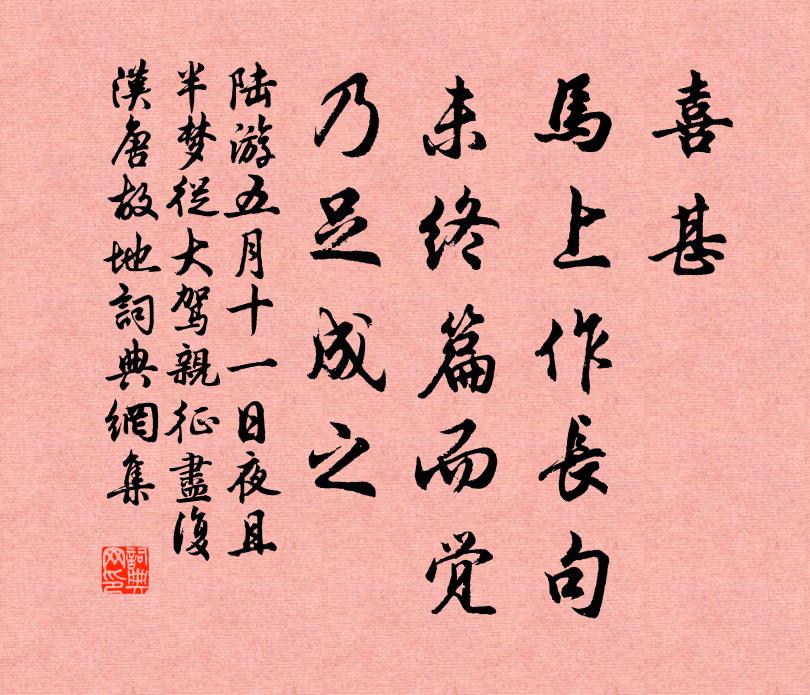 喜甚
馬上作長句
未终篇而觉
乃足成之
陆游五月十一日夜且
半梦從大驾親征盡復
漢唐故地詞典網集
詞典网印